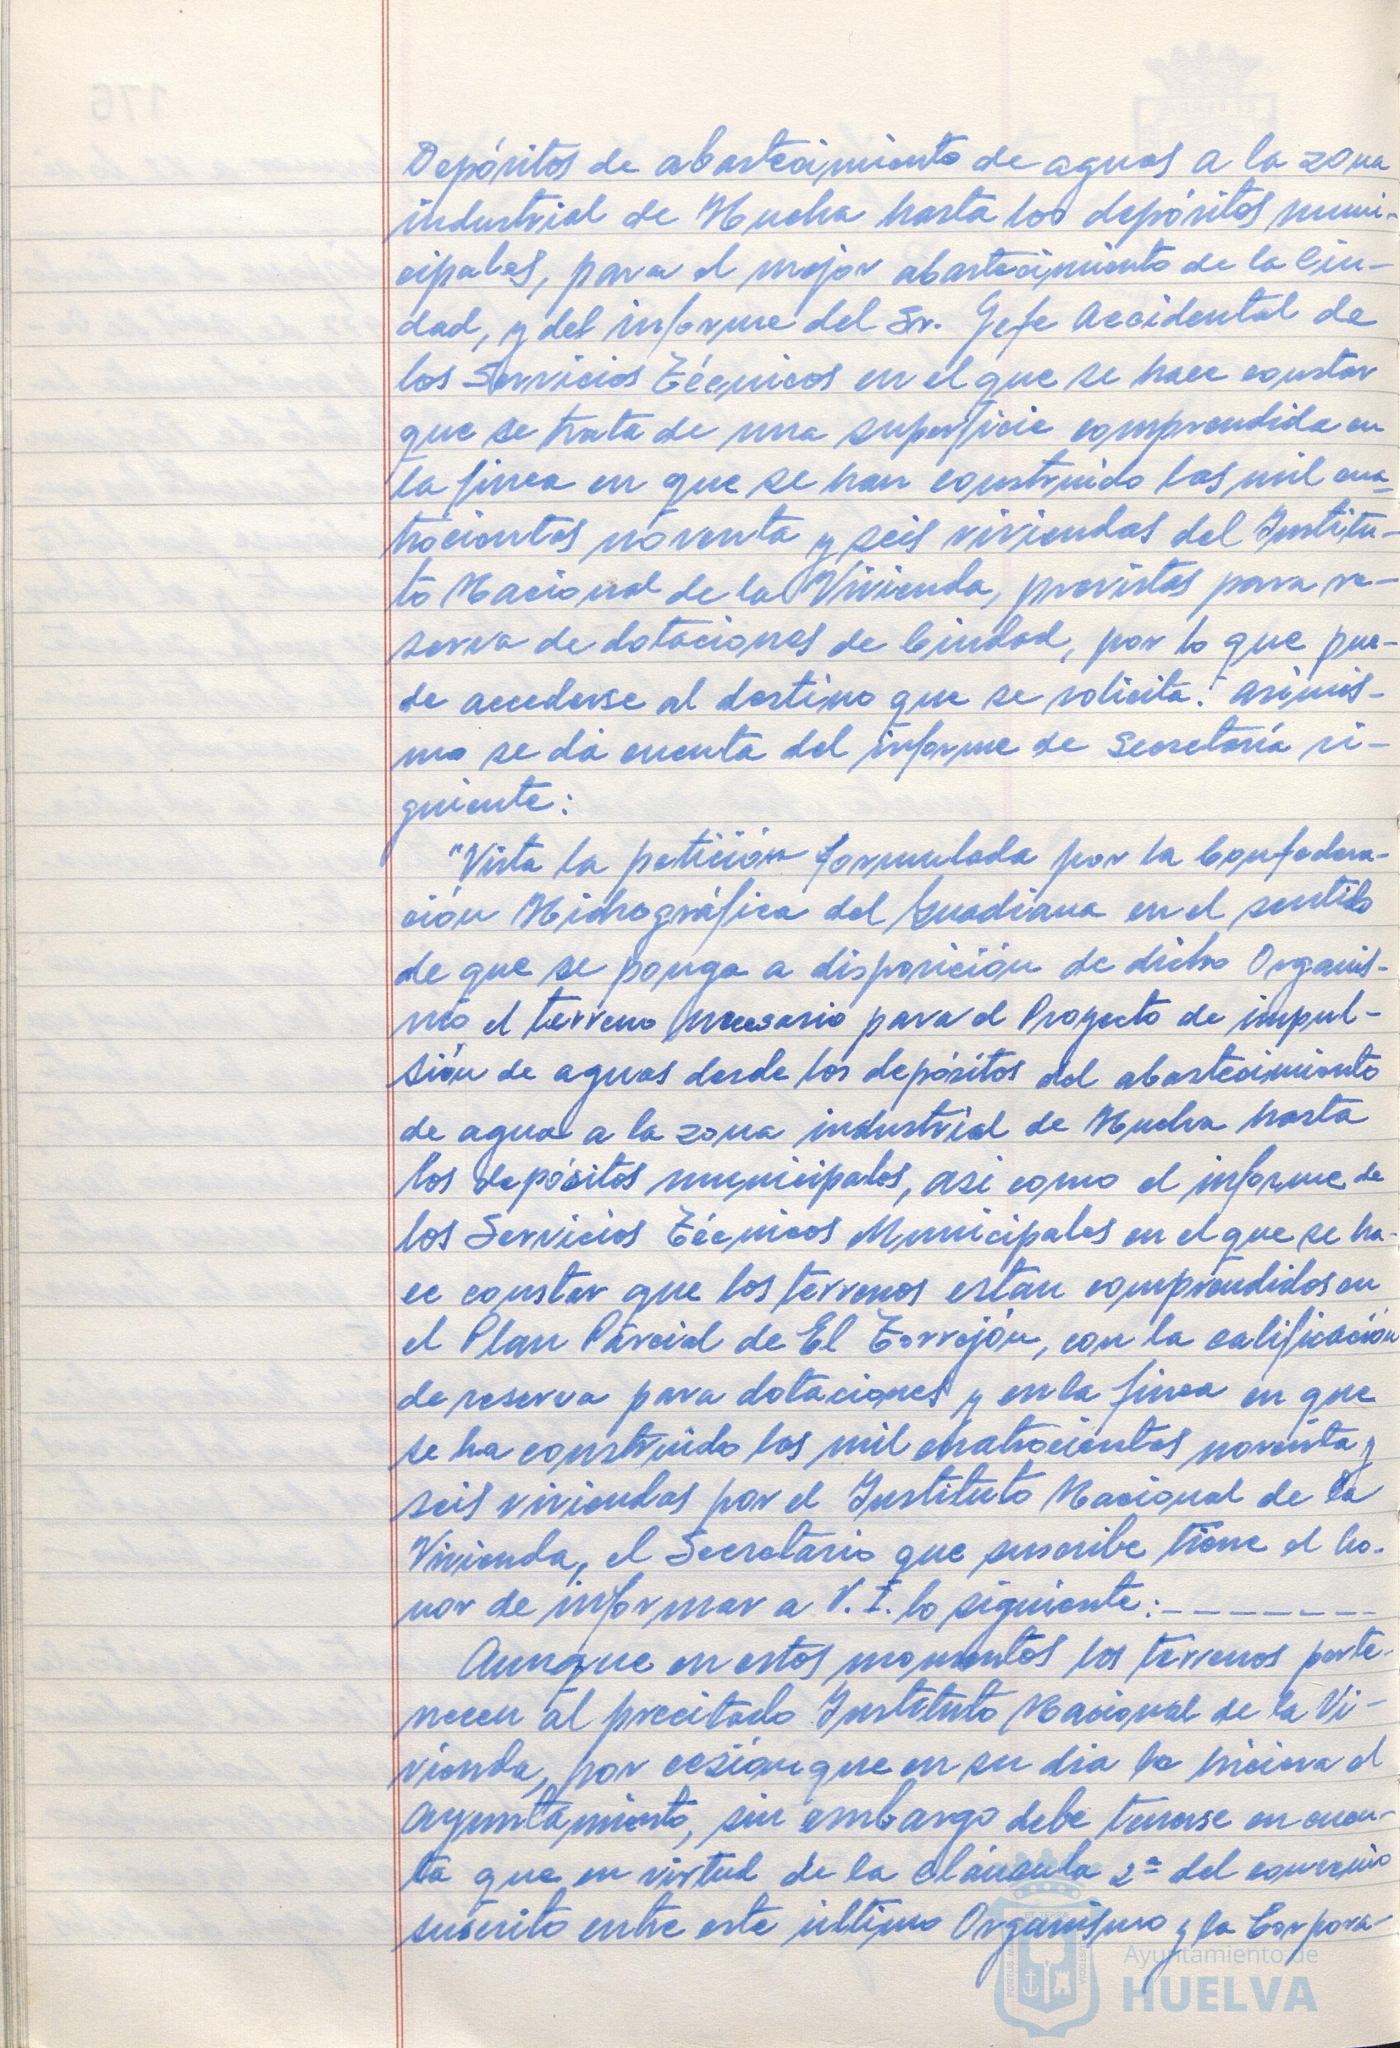 Depósitos de abastecimiento de aguas a la zona
industrial de Huelva hasta los depósitos muni-
cipales, para el mejor abastecimiento de la Ciu-
dad, y del informe del Sr. Gefe Accidental de
los Servicios Técnicos en el que se hace constar
que se trata de una superficie comprendida en
la finca en que se han construido las mil cua-
trocientas noventa y seis viviendas del Institu-
to Nacional de la Vivienda, previstas para re-
serva de dotaciones de Ciudad, por lo que pue-
de accederse al destino que se solicita. Asimis-
mo se dá cuenta del informe de Secretaría si-
guiente:
"Vista la petición formulada por la Confedera-
ción Hidrográfica del Guadiana en el sentido
de que se ponga a disposición de dicho Organis-
mo el terreno necesario para el Proyecto de impul-
sión de aguas desde los depósitos del abastecimiento
de agua a la zona industrial de Huelva hasta
los depósitos municipales, asi como el informe de
los Servicios Técnicos Municipales en el que se ha-
ce constar que los terrenos estan comprendidos en
el Plan Parcial de El Torrejón, con la calificación
de reserva para dotaciones y en la finca en que
se ha construido las mil cuatrocientas noventa y
seis viviendas por el Instituto Nacional de la
Vivienda, el Secretario que suscribe tiene el ho-
nor de informar a V.I. lo siguiente:--------
Aunque en estos momentos los terrenos perte-
necen al precitado Instituto Nacional de la Vi-
vienda, por cesión que en su dia le hiciera el
Ayuntamiento, sin embargo debe tenerse en cuen-
ta que en virtud de la cláusula 2ª del convenio
suscrito entre este último Organismo y la Corpora-
Ayuntamiento de
HUELVA